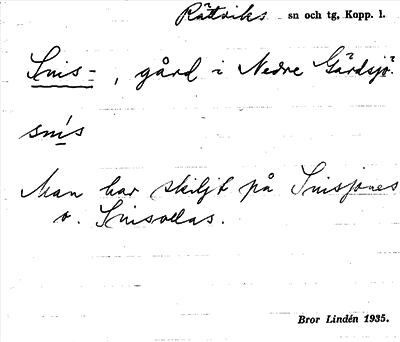 Rättviks sn och tg, Kopp. l.
Snis-, gård i Nedre Gärdsjö.
snís
Man har skiljt på Snisjones
o. Snisollas.
Bror Lindén 1935.